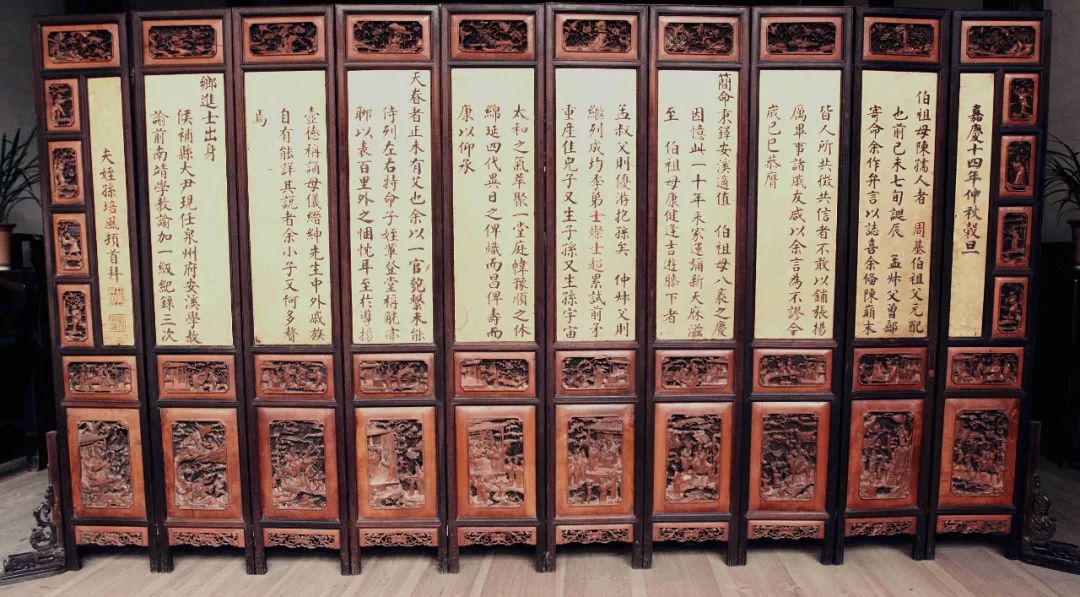 嘉慶十四年仲秋穀旦
伯祖母陳孺人者 周基伯祖父元配
也前己未七旬誕辰 孟叔父曾郵
寄命余作弁言以誌喜余備陳巔末
皆人所共徵共信者不敢以鋪張揚
厲畢事諸戚友咸以余言為不謬今
歲己巳恭膺
簡命秉鐸安溪適值 伯祖母八袠之慶
因憶此一十年來家運彌新天庥滋
至 伯祖母康健逢吉遊膝下者
孟叔父則優游抱孫矣 仲叔父則
繼列成均季弟士燦士超累試前矛
重產佳兒子又生子孫又生孫宇宙
太和之氣萃聚一堂庭幃豫順之休
綿延四代異日之俾熾而昌俾壽而
康以仰承
天眷者正未有艾也余以一官匏繫未能
侍列左右持命子姪輩登堂稱觥亦
聊以表百里外之悃忱耳至於導揚
壺德稱誦母儀縉紳先生中外戚族
自有能詳其說者余小子又何多贅
焉
鄉進士出身
候補縣大尹現任泉州府安溪學教
諭前南靖學教諭加一級紀錄三次
夫姪孫培風頓首拜